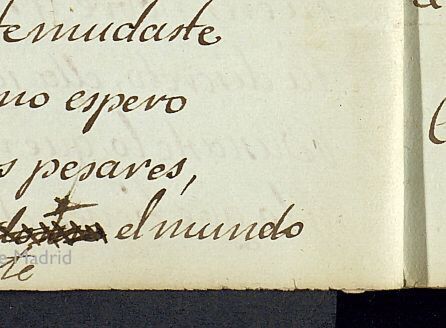 temudaste
no espero
s pesares,
el mundo
e Madrid